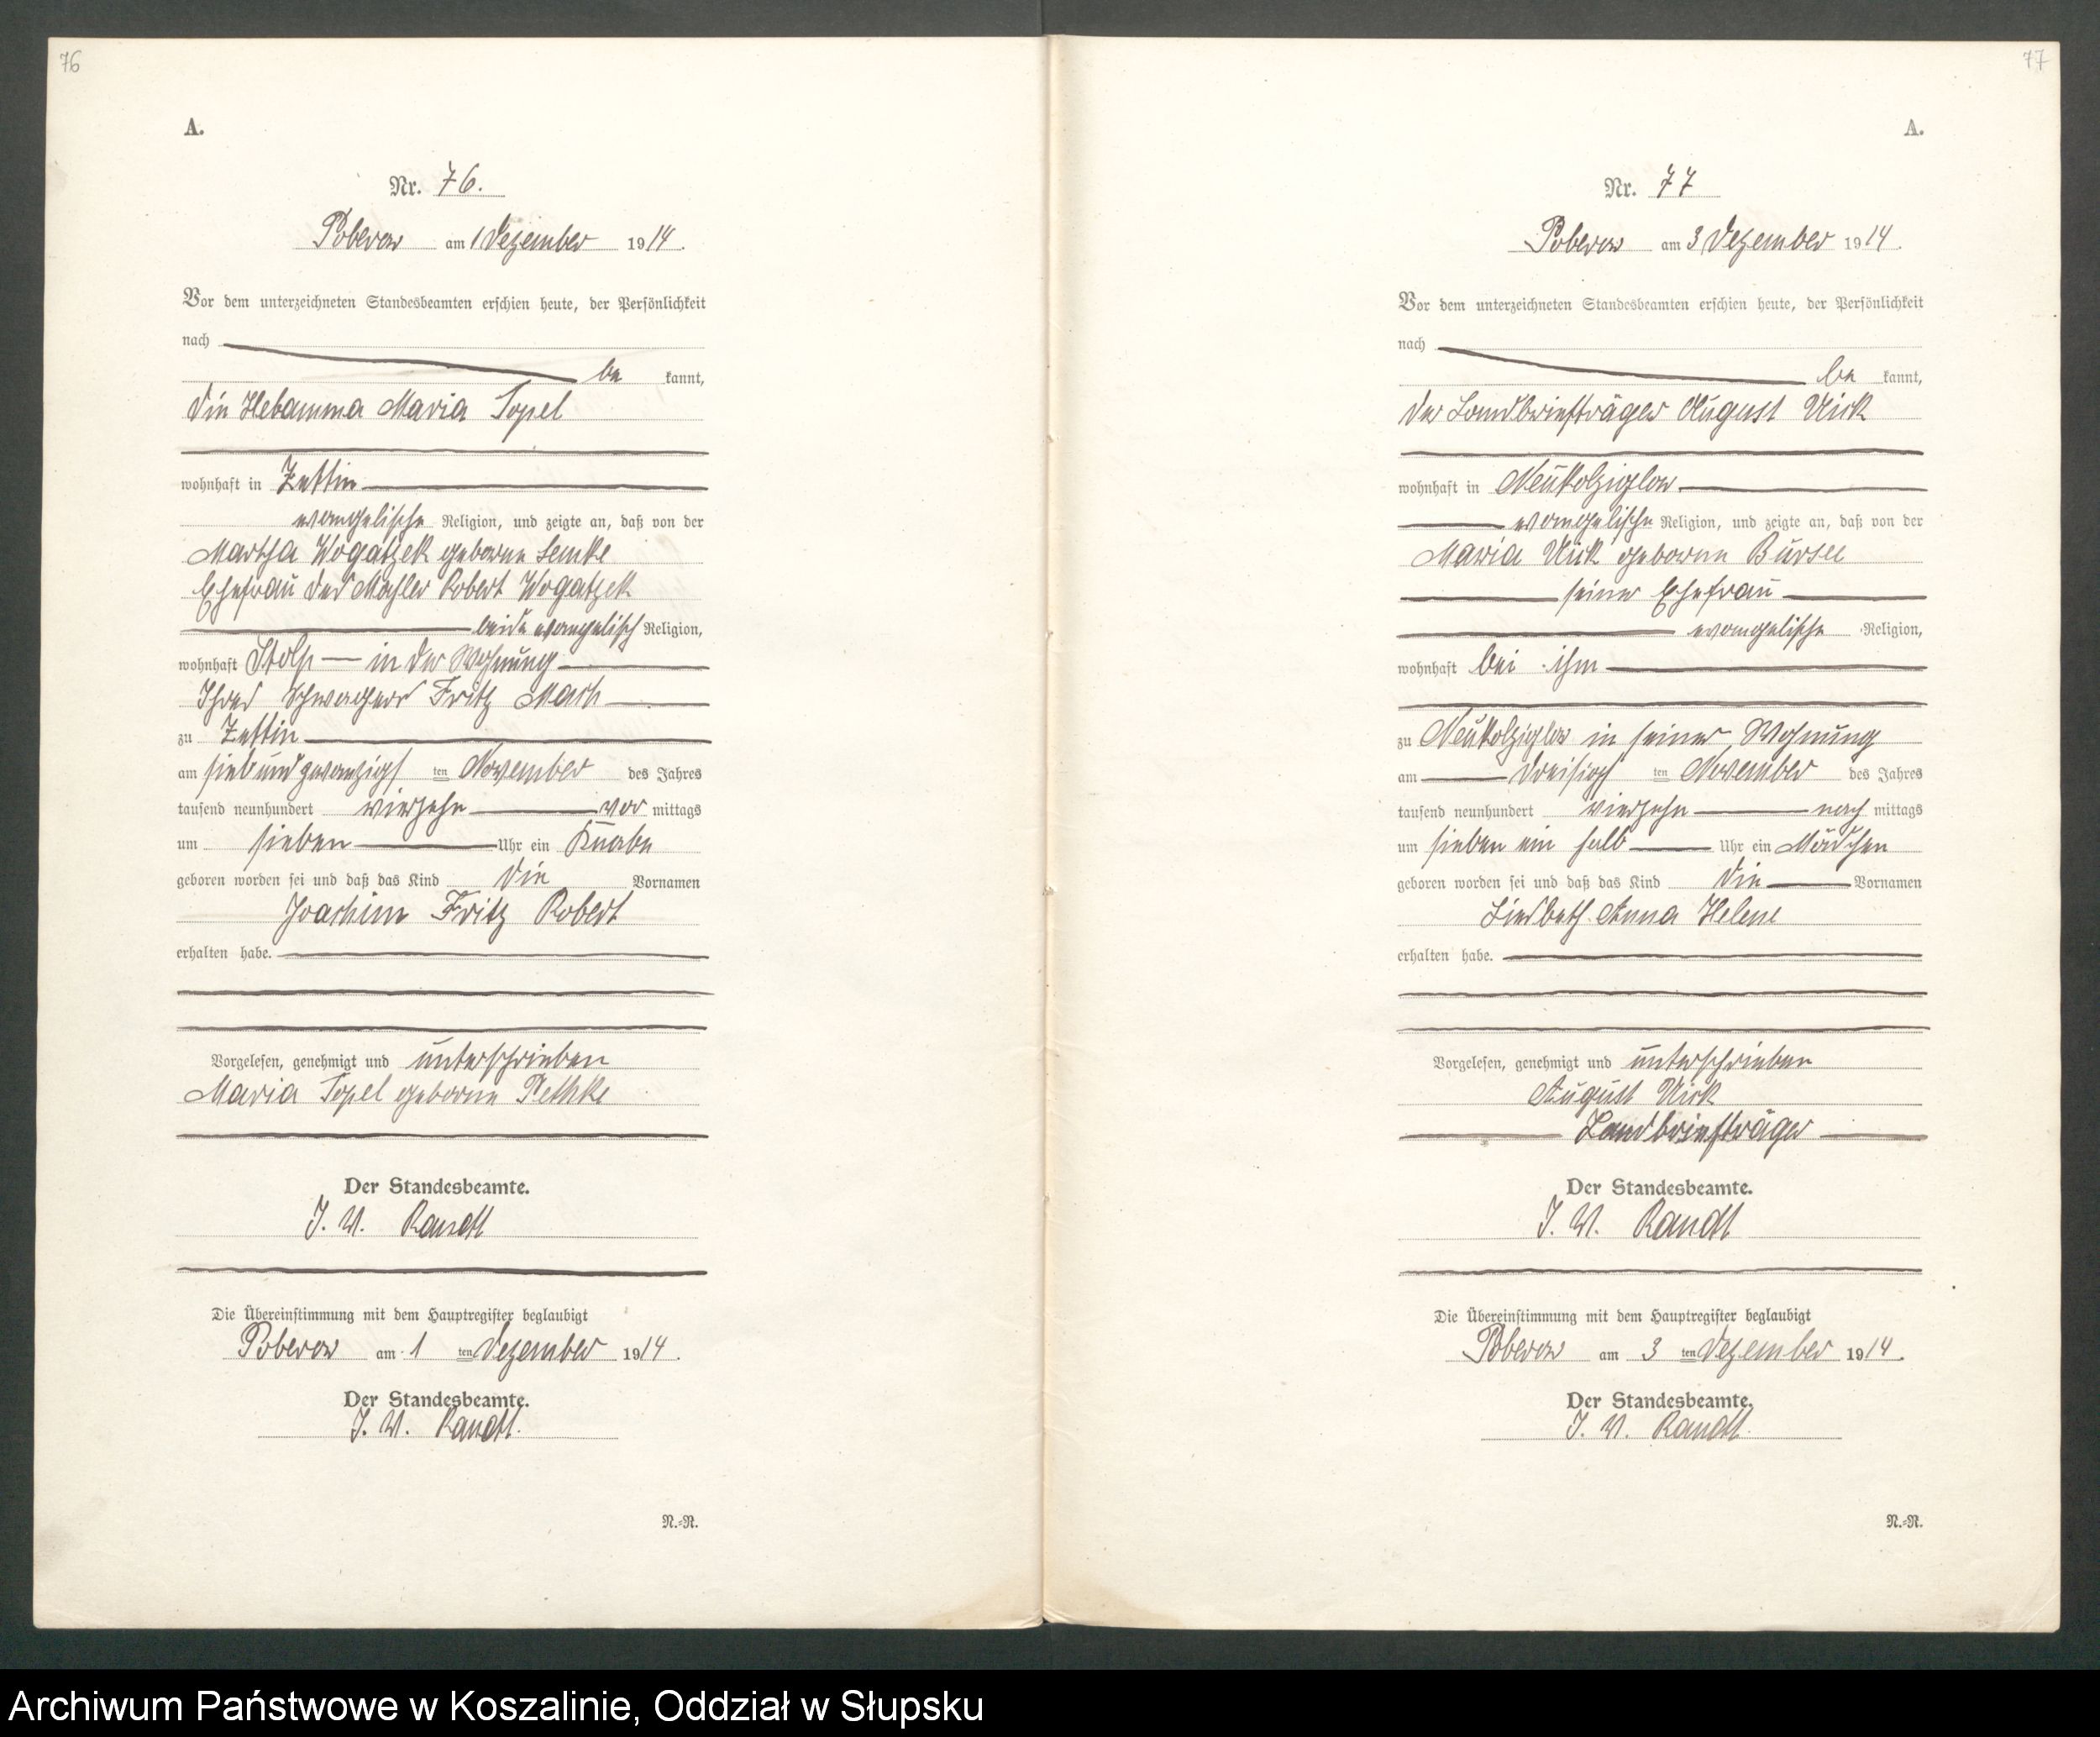 76
A.
Nr. 76.
Poberow am 1 Dezember 1914.
Vor dem unterzeichneten Standesbeamten erschien heute, der Persönlichkeit
nach
be kannt,
die Hebamme Maria Topel
wohnhaft in Zettin
evangelische Religion, und zeigte an, daß von der
Martha Wogatzek geborne Lemke
Ehefrau des Robert Wogatzek
beide evangelisch Religion,
wohnhaft Stolp in der Wohnung
Ihres Schwagers Fritz Mach
zu Zettin
am siebundzwanzigst ten November des Jahres
tausend neunhundert vierzehn vor mittags
um sieben Uhr ein Knabe
geboren worden sei und daß das Kind die Vornamen
Joachim Fritz Robert
erhalten habe.
Vorgelesen, genehmigt und unterschrieben
Maria Topel geborne Pethke
Der Standesbeamte.
J. V. Randt
Die Übereinstimmung mit dem Hauptregister beglaubigt
Poberow am 1 ten Dezember 1914.
Der Standesbeamte.
J. V. Randt.
N.-N.
77
A.
Nr. 77
Poberow am 3 Dezember 1914.
Vor dem unterzeichneten Standesbeamten erschien heute, der Persönlichkeit
nach
be kannt,
der Landbriefträger August Uick
wohnhaft in Neukolziglow
evangelische Religion, und zeigte an, daß von der
Maria Uick geborne
seiner Ehefrau
evangelische Religion,
wohnhaft bei ihm
zu Neukolziglow in seiner Wohnung
am dreisigst ten November des Jahres
tausend neunhundert vierzehn nach mittags
um sieben ein halb Uhr ein Mädchen
geboren worden sei und daß das Kind die Vornamen
Liesbeth Anna Helene
erhalten habe.
Vorgelesen, genehmigt und unterschrieben
August Uick
Landbriefträger
Der Standesbeamte.
J. V. Randt
Die Übereinstimmung mit dem Hauptregister beglaubigt
Poberow am 3 ten Dezember 1914.
Der Standesbeamte.
J. V. Randt.
N.-N.
Archiwum Państwowe w Koszalinie, Oddział w Słupsku